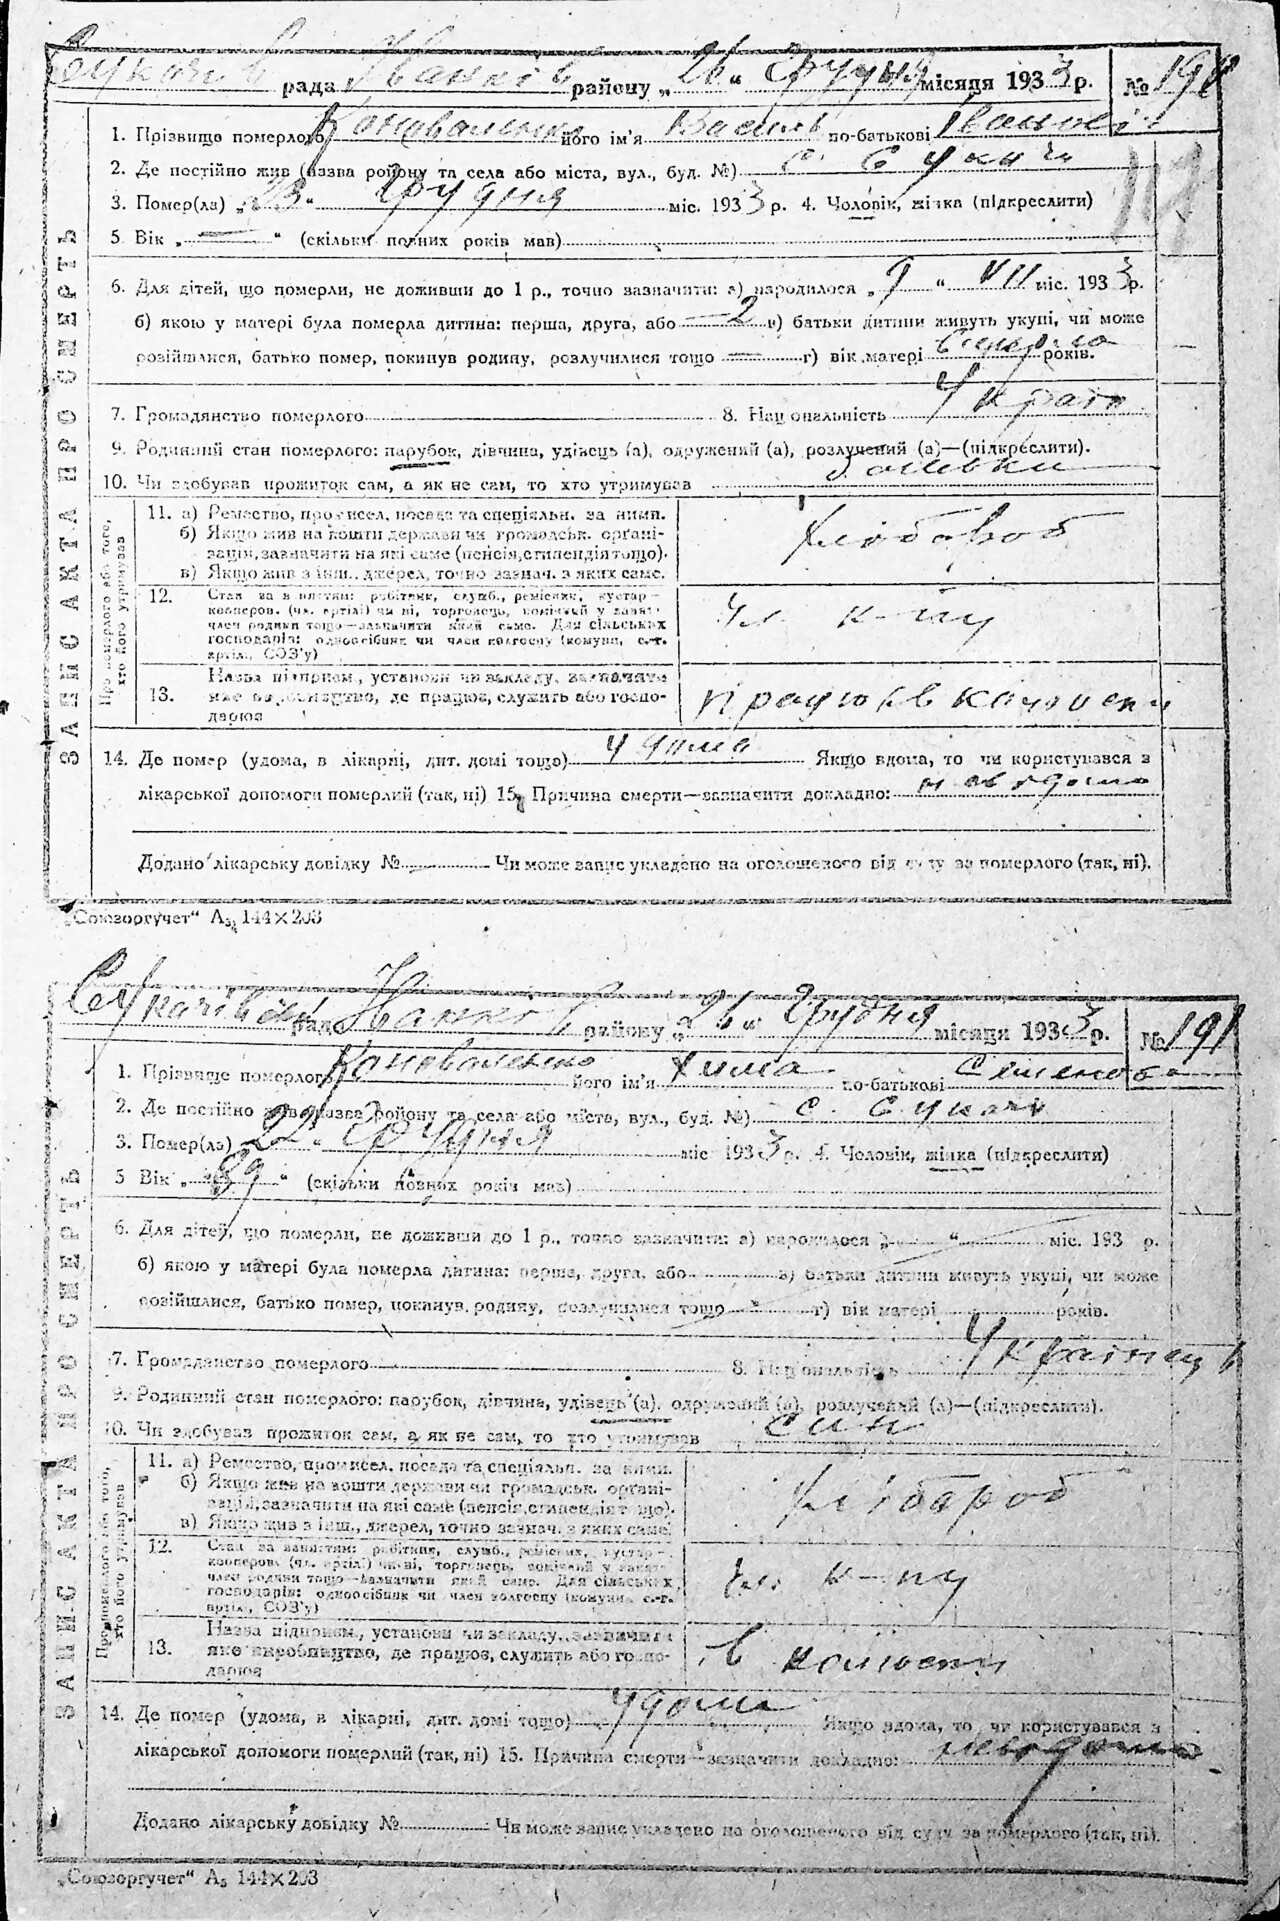 рада Іванків району „26“ Грудня місяця 1933 р. №
1. Прізвище померлого Коноваленко його ім'я Василь по-батькові
2. Де постійно жив (назва району та села або міста, вул., буд. №) с. Сукачі
3. Помер(ла) „23“ Грудня міс. 1933 р. 4. Чоловік, жінка (підкреслити)
5 Вік „—“ (скільки повних років мав)
6. Для дітей, що померли, не доживши до 1 р., точно зазначити: а) народилося „9“ VII міс. 1933 р.
б) якою у матері була померла дитина: перша, друга, або —2 в) батьки дитини живуть укупі, чи може
розійшлися, батько помер, покинув родину, розлучилися тощо — г) вік матері років.
7. Громадянство померлого 8. Національність
9. Родинний стан померлого: парубок, дівчина, удівець (а), одружений (а), розлучений (а)—(підкреслити).
10. Чи здобував прожиток сам, а як не сам, то хто утримував батьки
ЗАПИС АКТА ПРО СМЕРТЬ
Про померлого або того, хто його утримував
11. а) Ремество, промисел, посада та спеціяльн. за ними.
б) Якщо жив на кошти держави чи громадськ. орґані-
зацій, зазначити на які саме (пенсія, стипендія тощо).
в) Якщо жив з інш. джерел, точно зазнач. з яких саме.
хлібороб
12. Стан за заняттям: робітник, служб., ремісник, кустар-
кооперов. (чл. артілі) чи ні, торговець, помічний у занят.
член родини тощо—зазначити який саме. Для сільських
господарів: одноосібник чи член колгоспу (комуни, с.-г.
артіл., СОЗ'у)
чл. к-пу
13. Назва підприєм., установи чи закладу, зазначити
яке виробництво, де працює, служить або госпо-
дарює
працює в колгоспі
14. Де помер (удома, в лікарні, дит. домі тощо) удома Якщо вдома, то чи користувався з
лікарської допомоги померлий (так, ні) 15. Причина смерти—зазначити докладно: невідомо
Додано лікарську довідку № — Чи може запис укладено на оголошеного від суду за померлого (так, ні).
„Союзоргучет“ А₃, 144×203
Сукачівській рада Іванків району „26“ Грудня місяця 1933 р. № 191
1. Прізвище померлого Коноваленко його ім'я Хима по-батькові Семенова
2. Де постійно жив (назва району та села або міста, вул., буд. №) с. Сукачі
3. Помер(ла) „22“ Грудня міс. 1933 р. 4. Чоловік, жінка (підкреслити)
5 Вік „“ (скільки повних років мав)
6. Для дітей, що померли, не доживши до 1 р., точно зазначити: а) народилося „ “ міс. 193 р.
б) якою у матері була померла дитина: перша, друга, або в) батьки дитини живуть укупі, чи може
розійшлися, батько помер, покинув родину, розлучилися тощо г) вік матері років.
7. Громадянство померлого 8. Національність
9. Родинний стан померлого: парубок, дівчина, удівець (а), одружений (а), розлучений (а)—(підкреслити).
10. Чи здобував прожиток сам, а як не сам, то хто утримував син
ЗАПИС АКТА ПРО СМЕРТЬ
Про померлого або того, хто його утримував
11. а) Ремество, промисел, посада та спеціяльн. за ними.
б) Якщо жив на кошти держави чи громадськ. орґані-
зацій, зазначити на які саме (пенсія, стипендія тощо).
в) Якщо жив з інш. джерел, точно зазнач. з яких саме.
хлібороб
12. Стан за заняттям: робітник, служб., ремісник, кустар-
кооперов. (чл. артілі) чи ні, торговець, помічний у занят.
член родини тощо—зазначити який саме. Для сільських
господарів: одноосібник чи член колгоспу (комуни, с.-г.
артіл., СОЗ'у)
чл. к-пу
13. Назва підприєм., установи чи закладу, зазначити
яке виробництво, де працює, служить або госпо-
дарює
в колгоспі
14. Де помер (удома, в лікарні, дит. домі тощо) удома Якщо вдома, то чи користувався з
лікарської допомоги померлий (так, ні) 15. Причина смерти—зазначити докладно: невідома
Додано лікарську довідку № Чи може запис укладено на оголошеного від суду за померлого (так, ні).
„Союзоргучет“ А₃ 144×203